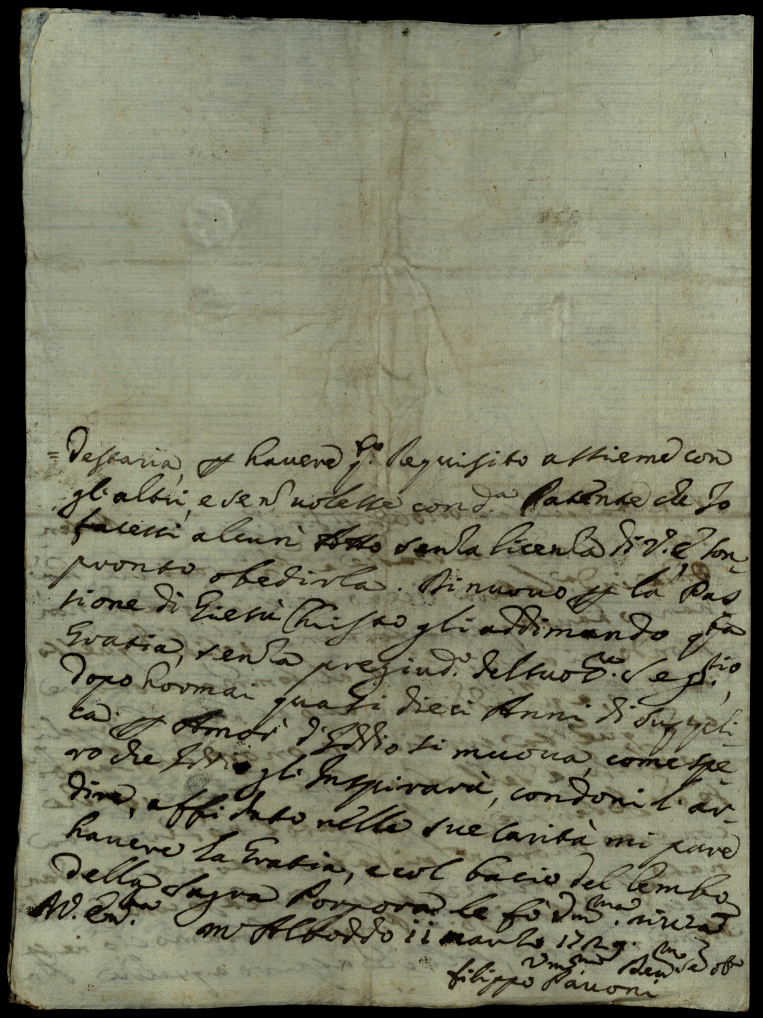 =destaria, p havere q.sto Requisito assieme con
gl'altri, e se no' volesse con d.a Patente che Io
facessi alcun Atto senza licenza di V. E. son
pronto obedirla. Di nuovo p la Pas
sione di Giesù Christo gli addimando q.sta
Gratia, senza pregiud.o del suo
dopo hormai quasi dieci Anni di suppli-
ca. p Amor d'Iddio si muova, come spe-
ro che Iddio gli Inspirarà, condoni l'ar-
dire, affidato nelle sue carità mi pare
havere la Gratia, e col bacio del lembo
della Sagra Porpora le fò riverza
Ad. Em.za M. Alboddo 11 Marzo 1729.
filippo Pavoni